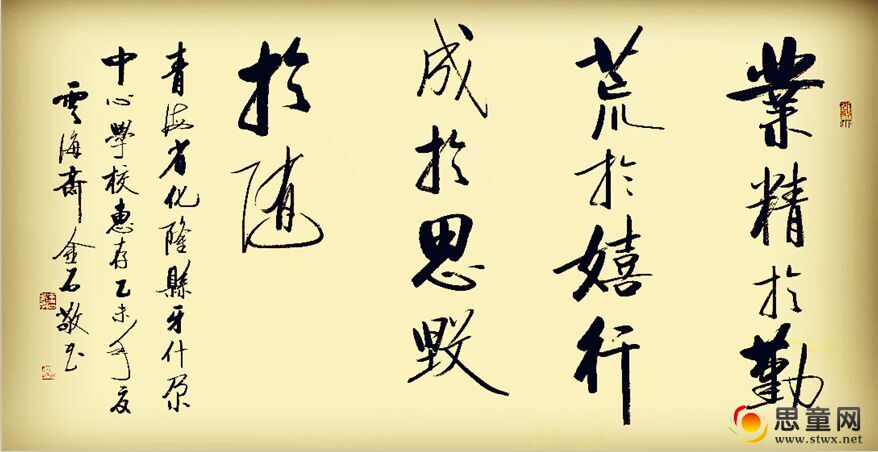 業精於勤
荒於嬉行
成於思毀
於随
青海省化隆縣牙什尕
中心學校惠存乙未年夏
雲海齋金石敬书
思童网
www.stwx.net